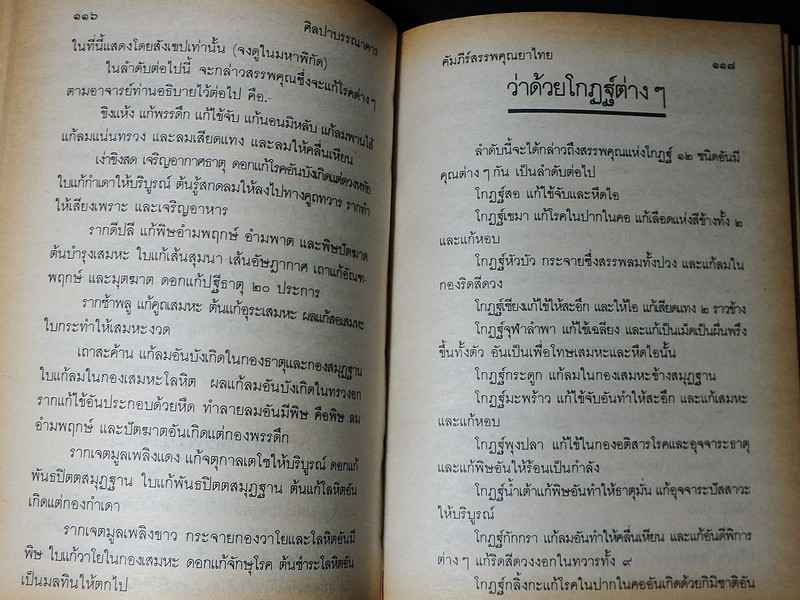 ๑๑๖
ศิลปาบรรณาคาร
ในที่นี้แสดงโดยสังเขปเท่านั้น (จงดูในมหาพิกัด)
ในลำดับต่อไปนี้ จะกล่าวสรรพคุณซึ่งจะแก้โรคต่างๆ
ตามอาจารย์ท่านอธิบายไว้ต่อไป คือ.-
ขิงแห้ง แก้พรรดึก แก้ไข้จับ แก้นอนมิหลับ แก้ลมพานไส้
แก้ลมแน่นทรวง และลมเสียดแทง และลมให้คลื่นเหียน
เง่าขิงสด เจริญอากาศธาตุ ดอกแก้โรคอันบังเกิดแต่ดวงหทัย
ใบแก้กำเดาให้บริบูรณ์ ต้นรู้สกดลมให้ลงไปทางคูถทวาร รากทำ
ให้เสียงเพราะ และเจริญอาหาร
รากดีปลี แก้พิษอำมพฤกษ์ อำมพาต และพิษปัตฆาต
ต้นบำรุงเสมหะ ใบแก้เส้นสุมนา เส้นอัษฎากาศ เถาแก้อัณฑ-
พฤกษ์ และมุตฆาต ดอกแก้ปฐวีธาตุ ๒๐ ประการ
รากช้าพลู แก้คูถเสมหะ ต้นแก้อุระเสมหะ ผลแก้สอเสมหะ
ใบกระทำให้เสมหะงวด
เถาสะค้าน แก้ลมอันบังเกิดในกองธาตุและกองสมุฏฐาน
ใบแก้ลมในกองเสมหะโลหิต ผลแก้ลมอันบังเกิดในทรวงอก
รากแก้ไข้อันประกอบด้วยหืด ทำลายลมอันมีพิษ คือพิษ ลม
อำมพฤกษ์ และปัตฆาตอันเกิดแต่กองพรรดึก
รากเจตมูลเพลิงแดง แก้จตุกาลเตโชให้บริบูรณ์ ดอกแก้
พันธปิตตสมุฏฐาน ใบแก้พันธปิตตสมุฏฐาน ต้นแก้โลหิตอัน
เกิดแต่กองกำเดา
รากเจตมูลเพลิงขาว กระจายกองวาโยและโลหิตอันมี
พิษ ใบแก้วาโยในกองเสมหะ ดอกแก้จักษุโรค ต้นชำระโลหิตอัน
เป็นมลทินให้ตกไป
คัมภีร์สรรพคุณยาไทย
๑๑๗
ว่าด้วยโกฏฐ์ต่าง ๆ
ลำดับนี้จะได้กล่าวถึงสรรพคุณแห่งโกฏฐ์ ๑๒ ชนิดอันมี
คุณต่าง ๆ กัน เป็นลำดับต่อไป
โกฏฐ์สอ แก้ไข้จับและหืดไอ
โกฏฐ์เขมา แก้โรคในปากในคอ แก้เลือดแห่งสีข้างทั้ง ๒
และแก้หอบ
โกฏฐ์หัวบัว กระจายซึ่งสรรพลมทั้งปวง และแก้ลมใน
กองริดสีดวง
โกฏฐ์เชียงแก้ไข้ให้สะอึก และให้ไอ แก้เสียดแทง ๒ ราวข้าง
โกฏฐ์จุฬาลำพา แก้ไข้เฉลียง และแก้เป็นเม็ดเป็นผื่นพรึง
ขึ้นทั้งตัว อันเป็นเพื่อโทษเสมหะและหืดไอนั้น
โกฏฐ์กระดูก แก้ลมในกองเสมหะข้างสมุฏฐาน
โกฏฐ์มะพร้าว แก้ไข้จับอันทำให้สะอึก และแก้เสมหะ
และแก้หอบ
โกฏฐ์พุงปลา แก้ไข้ในกองอติสารโรคและอุจจาระธาตุ
และแก้พิษอันให้ร้อนเป็นกำลัง
โกฏฐ์น้ำเต้าแก้พิษอันทำให้ธาตุมั่น แก้อุจจาระปัสสาวะ
ให้บริบูรณ์
โกฏฐ์กักกรา แก้ลมอันทำให้คลื่นเหียน และแก้อันดีพิการ
ต่างๆ แก้ริดสีดวงงอกในทวารทั้ง ๙
โกฏฐ์กลิ้งกะแก้โรคในปากในคออันเกิดด้วยกิมิชาติอัน